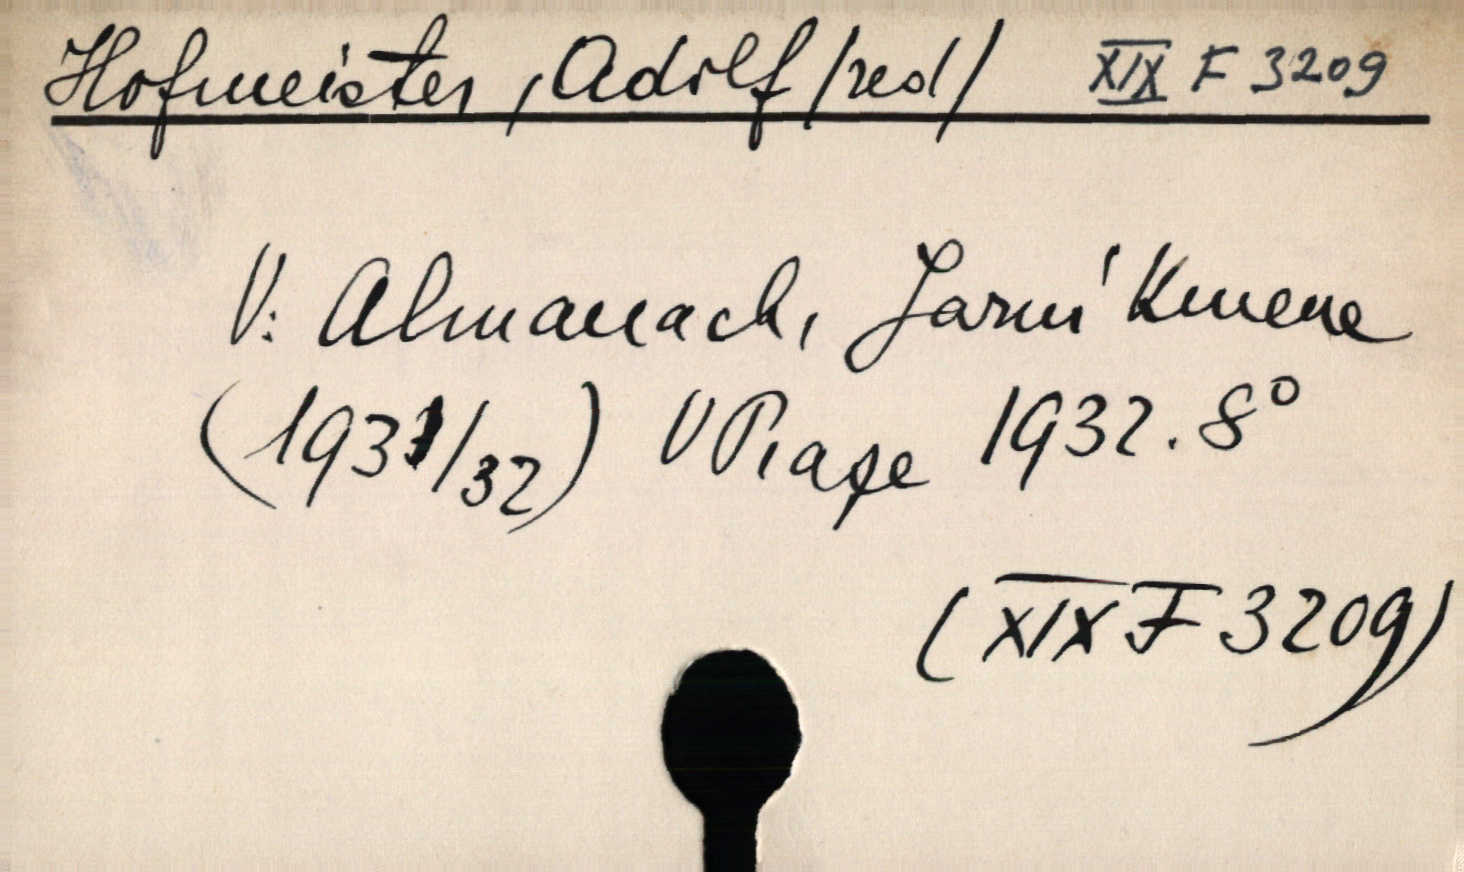 Hofmeister, Adolf /red/ XIX F 3209
V: Almanach, Jarní Kmene
(1931/32) V Praze 1932. 8°
(XIX F 3209)